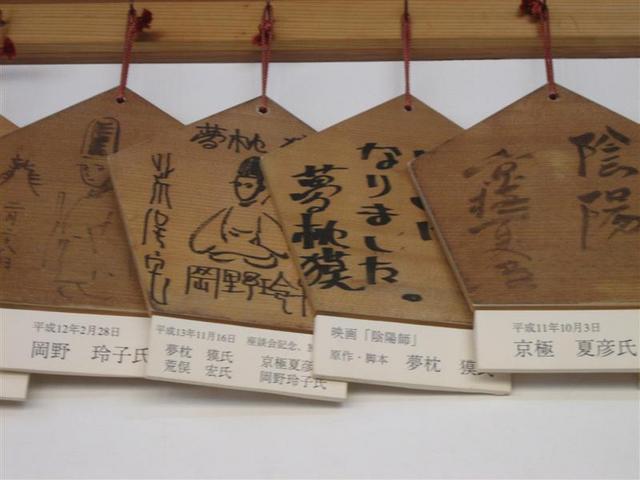 平成12年2月28日
岡野 玲子氏
夢枕
荒俣宏
岡野玲子
平成13年11月16日 座談会記念、
夢枕 獏氏
京極夏彦
荒俣 宏氏
岡野玲子氏
なりました。
夢枕獏
映画「陰陽師」
原作・脚本 夢枕 獏氏
陰陽
京極夏彦
平成11年10月3日
京極 夏彦氏